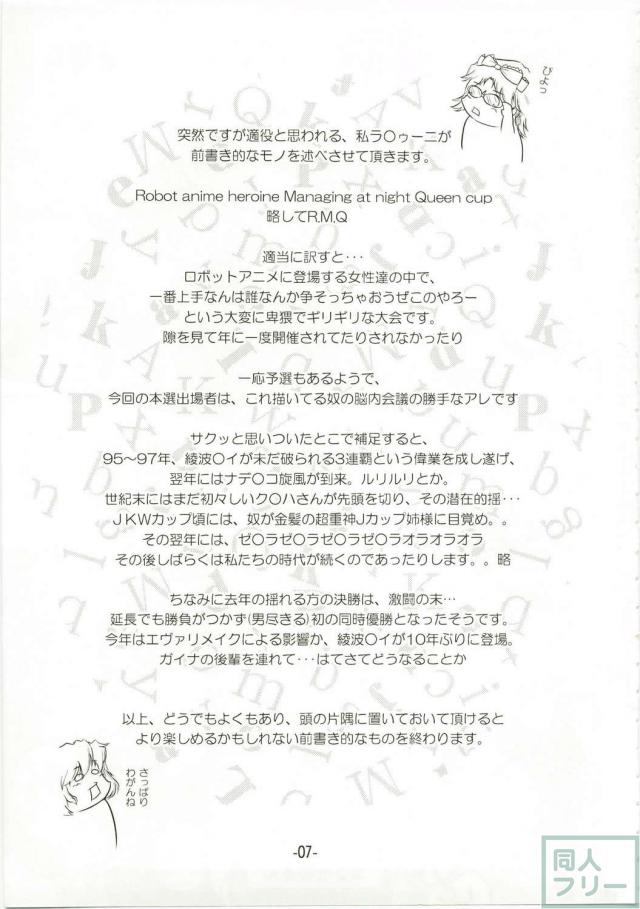 ぴよっ
突然ですが適役と思われる、私ラ〇ゥーニが
前書き的なモノを述べさせて頂きます。
Robot anime heroine Managing at night Queen cup
略してR.M.Q
適当に訳すと・・・
ロボットアニメに登場する女性達の中で、
一番上手なんは誰なんか争そっちゃおうぜこのやろー
という大変に卑猥でギリギリな大会です。
隙を見て年に一度開催されてたりされなかったり
一応予選もあるようで、
今回の本選出場者は、これ描いてる奴の脳内会議の勝手なアレです
サクッと思いついたとこで補足すると、
95～97年、綾波〇イが未だ破られる3連覇という偉業を成し遂げ、
翌年にはナデ〇コ旋風が到来。ルリルリとか。
世紀末にはまだ初々しいク〇ハさんが先頭を切り、その潜在的揺・・・
JKWカップ頃には、奴が金髪の超重神Jカップ姉様に目覚め。。
その翌年には、ゼ〇ラゼ〇ラゼ〇ラゼ〇ラオラオラオラ
その後しばらくは私たちの時代が続くのであったりします。。略
ちなみに去年の揺れる方の決勝は、激闘の末・・・
延長でも勝負がつかず(男尽きる)初の同時優勝となったそうです。
今年はエヴァリメイクによる影響か、綾波〇イが10年ぶりに登場。
ガイナの後輩を連れて・・・はてさてどうなることか
以上、どうでもよくもあり、頭の片隅に置いておいて頂けると
より楽しめるかもしれない前書き的なものを終わります。
さっぱり
わがんね
-07-
同人
フリー